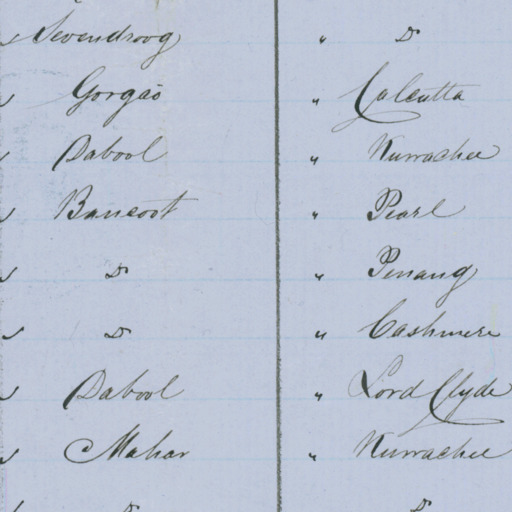 " Sevendroog " Do
" Gorgao " Calcutta
" Dabool " Kurrachee
" Bancoot " Pearl
" Do " Penang
" Do " Cashmere
" Dabool " Lord Clyde
" Mahar " Kurrachee
" Do Do